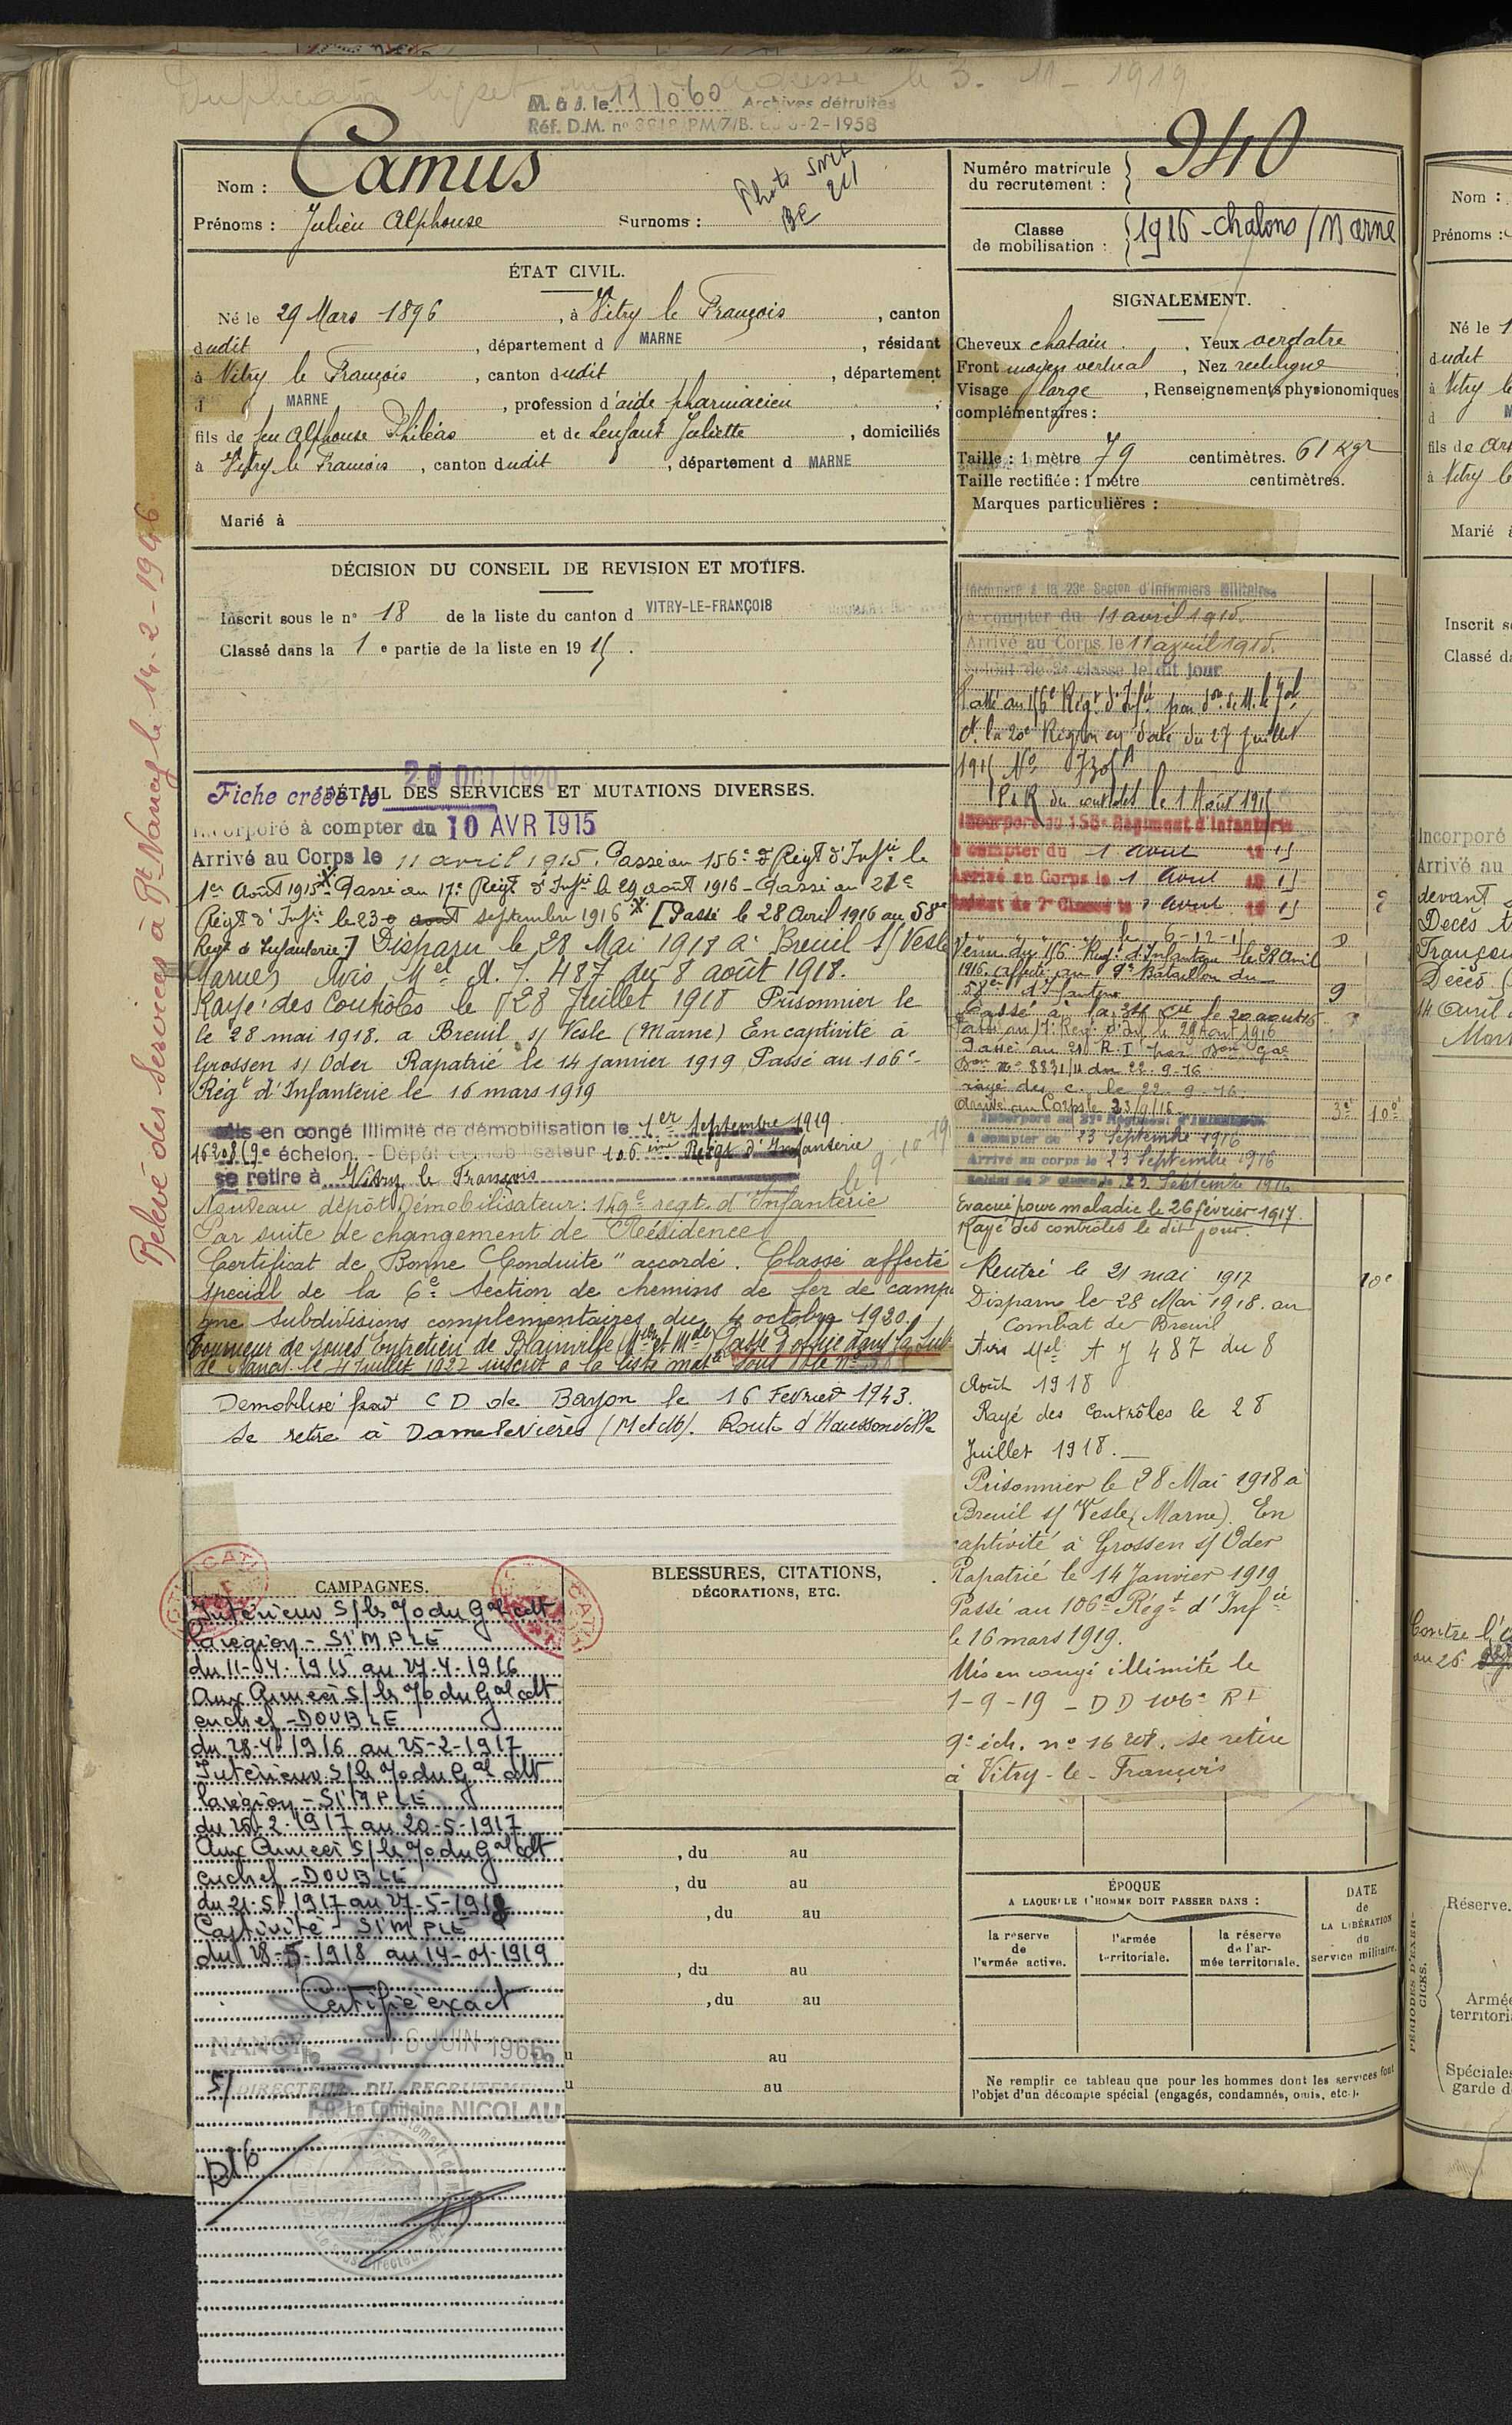 Duplicata livret même adresse le 3. 11 - 1919
M. à J. le 11/060 Archives détruites
Réf. D.M. n° PM/7/B. -2-1958
Nom : Camus
Photo
Prénoms : Julien Alphonse Surnoms :
Numéro matricule du recrutement : 940
Classe de mobilisation : 1916 - Chalons / Marne
ÉTAT CIVIL.
Né le 29 Mars 1896, à Vitry le François, canton
dudit, département d MARNE, résidant
à Vitry le François, canton dudit, département
d MARNE, profession d'aide pharmacien
fils de feu Alphonse Philéas et de Lenfant Juliette, domiciliés
à Vitry le François, canton dudit, département d MARNE
Marié à
SIGNALEMENT.
Cheveux chatain. Yeux verdatre
Front moyen vertical, Nez rectiligne
Visage large, Renseignements physionomiques
complémentaires :
Taille : 1 mètre 79 centimètres. 61 Kgr
Taille rectifiée : 1 mètre centimètres.
Marques particulières :
DÉCISION DU CONSEIL DE REVISION ET MOTIFS.
Inscrit sous le n° 18 de la liste du canton d VITRY-LE-FRANÇOIS
Classé dans la 1 e partie de la liste en 1915.
Relevé des services à Bt Nancy le 14-2-1946
20 OCT 1920
Fiche créée le
DÉTAIL DES SERVICES ET MUTATIONS DIVERSES.
Incorporé à compter du 10 AVR 1915
Arrivé au Corps le 11 avril 1915. Passé au 156e Régt d'Infie le
1er Août 1915 X Passé au 17e Régt d'Infie le 29 août 1916 - Passé au 21e
Régt d'Infie le 23 août septembre 1916 X [Passé le 28 Avril 1916 au 58e
Regt d'Infanterie] Disparu le 28 Mai 1918 à Breuil s/ Vesle
(Marne) Avis Mel A. J. 487 du 8 août 1918.
Rayé des Contrôles le 28 Juillet 1918 Prisonnier le
le 28 mai 1918. a Breuil s/ Vesle (Marne) En captivité à
Grossen s/ Oder Rapatrié le 14 janvier 1919 Passé au 106e
Régt d'Infanterie le 16 mars 1919
Mis en congé illimité de démobilisation le 1er Septembre 1919
16208 (9e échelon. - Dépôt démobilisateur 106ème Régt d'Infanterie
se retire à Vitry le François
le 9-10 19
Nouveau dépôt Démobilisateur : 149e regt. d'Infanterie
Par suite de changement de Résidence
Certificat de "Bonne Conduite" accordé. Classé affecté
spécial de la 6e Section de chemins de fer de campa
gne Subdivisions complémentaires du 4 octobre 1920.
Tourneur de roues Entretien de Blainville (Mthe et Mlle) Passé d'office dans la Sub
de Nancy le 4 Juillet 1927 inscrit à la liste matle sous le n°
Démobilisé par C D de Bayon le 16 Février 1943.
Se retire à Damelevières (M et M). Route d'Haussonville
CAMPAGNES.
Intérieur S/ls /o du Gal cdt
la région - SIMPLE
du 11-04-1915 au 27-4-1916
Aux Armées S/ls /o du Gal cdt
en chef - DOUBLE
du 28-4-1916 au 25-2-1917
Intérieur S/ls /o du Gal cdt
la région - SIMPLE
du 26-2-1917 au 20-5-1917
Aux Armées S/ls /o du Gal cdt
en chef - DOUBLE
du 21-5-1917 au 27-5-1918
Captivité - SIMPLE
du 28-5-1918 au 14-01-1919
Certifié exact
NANCY le 16 JUIN 1966
S/ DIRECTEUR DU RECRUTEMENT
P.O. Le Capitaine NICOLAU
BLESSURES, CITATIONS,
DÉCORATIONS, ETC.
, du au
, du au
, du au
, du au
, du au
u au
u au
Incorporé à la 23e Section d'Infirmiers Militaires
à compter du 11 avril 1915.
Arrivé au Corps le 11 avril 1915.
Soldat de 2e classe le dit jour
Passé au 156e Régt d'Infie par don de M. le Gal
Ct la 20e Région en date du 27 juillet
1915 No
rayé des contrôles le 1 Août 1915
Incorporé au 156 Régiment d'Infanterie
à compter du 1 aout 1915
Arrivé au Corps le 1 Aout 1915
Soldat de 2e Classe le 1 aout 1915
le 6-12-15
Venu du 156 Regt d'Infanterie le 28 Avril
1916. Affecté au 9e Bataillon du
58e d'Infanterie
Passé à la 34 Cie le 20 août 16
Passé au 17e Regt d'Inf le 29 Aout 1916
Passé au 21 R.I par Don Gale
Don n° 8831/11 du 22-9-16
rayé des c. le 22-9-16
Arrivé au Corps le 23/9/16
Incorporé au 21e Régiment d'Infanterie
à compter du 23 Septembre 1916
Arrivé au corps le 23 Septembre 1916
Soldat de 2e classe le 23 Septembre 1916
Evacué pour maladie le 26 février 1917.
Rayé des contrôles le dit jour.
Rentré le 21 mai 1917
Disparu le 28 Mai 1918. au
Combat de Breuil
Avis Mel A J 487 du 8
Août 1918
Rayé des Contrôles le 28
Juillet 1918.
Prisonnier le 28 Mai 1918 à
Breuil s/ Vesle (Marne). En
captivité à Grossen s/ Oder
Rapatrié le 14 Janvier 1919
Passé au 106e Régt d'Infie
le 16 mars 1919.
Mis en congé illimité le
1-9-19 - D D 106e RI
9e éch. n° 16208. se retire
à Vitry-le-François
ÉPOQUE
A LAQUELLE L'HOMME DOIT PASSER DANS :
la réserve de l'armée active.
l'armée territoriale.
la réserve de l'armée territoriale.
DATE de LA LIBÉRATION du service militaire.
Ne remplir ce tableau que pour les hommes dont les services font
l'objet d'un décompte spécial (engagés, condamnés, omis, etc.).
Nom :
Prénoms :
Né le 1
dudit
à Vitry le
d
fils de
à Vitry le
Marié à
Inscrit s
Classé da
Incorporé
Arrivé au
devant
Décès
François
Décès
14 Avril
Mort
Contre l'
au 26
PÉRIODES D'EXERCICES.
Réserve.
Armée territoria
Spéciales garde d